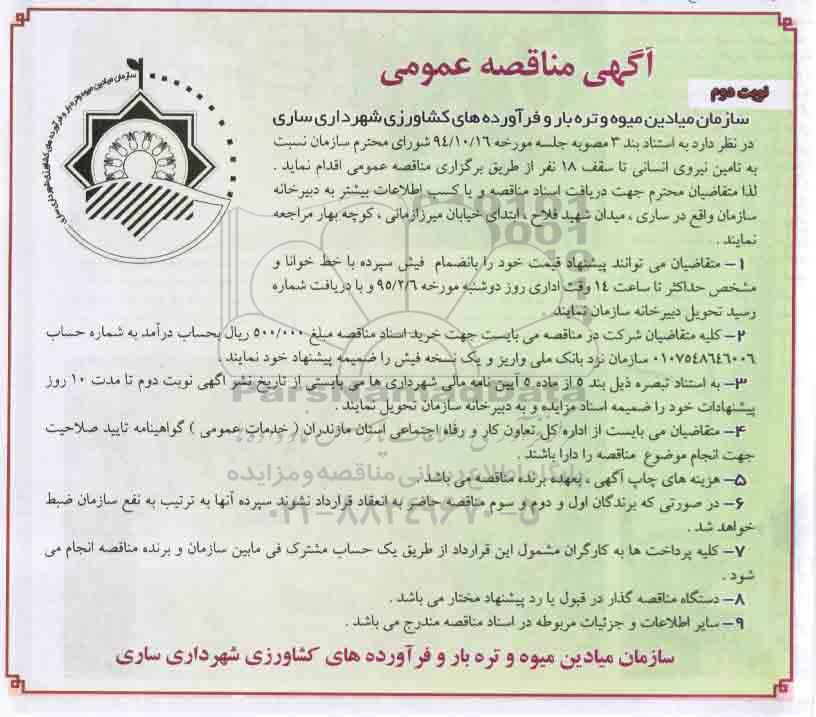 آگهی مناقصه عمومی
نوبت دوم
سازمان میادین میوه و تره بار و فرآورده های کشاورزی شهرداری ساری
در نظر دارد به استناد بند ۳ مصوبه جلسه مورخه ۹۴/۱۰/۱۶ شورای محترم سازمان نسبت
به تامین نیروی انسانی تا سقف ۱۸ نفر از طریق برگزاری مناقصه عمومی اقدام نماید .
لذا متقاضیان محترم جهت دریافت اسناد مناقصه و یا کسب اطلاعات بیشتر به دبیرخانه
سازمان واقع در ساری ، میدان شهید فلاح ، ابتدای خیابان میرزازمانی ، کوچه بهار مراجعه
نمایند .
۱– متقاضیان می توانند پیشنهاد قیمت خود را بانضمام فیش سپرده با خط خوانا و
مشخص حداکثر تا ساعت ۱۴ وقت اداری روز دوشنبه مورخه ۹۵/۲/۶ و با دریافت شماره
رسید تحویل دبیرخانه سازمان نمایند .
۲– کلیه متقاضیان شرکت در مناقصه می بایست جهت خرید اسناد مناقصه مبلغ ۵۰۰/۰۰۰ ریال بحساب درآمد به شماره حساب
۰۱۰۷۵۴۸۶۴۶۰۰۶ سازمان نزد بانک ملی واریز و یک نسخه فیش را ضمیمه پیشنهاد خود نمایند .
۳– به استناد تبصره ذیل بند ۵ از ماده ۵ آیین نامه مالی شهرداری ها می بایستی از تاریخ نشر آگهی نوبت دوم تا مدت ۱۰ روز
پیشنهادات خود را ضمیمه اسناد مزایده و به دبیرخانه سازمان تحویل نمایند .
۴– متقاضیان می بایست از اداره کل تعاون کار و رفاه اجتماعی استان مازندران ( خدمات عمومی ) گواهینامه تایید صلاحیت
جهت انجام موضوع مناقصه را دارا باشند .
۵– هزینه های چاپ آگهی ، بعهده برنده مناقصه می باشد .
۶– در صورتی که برندگان اول و دوم و سوم مناقصه حاضر به انعقاد قرارداد نشوند سپرده آنها به ترتیب به نفع سازمان ضبط
خواهد شد .
۷– کلیه پرداخت ها به کارگران مشمول این قرارداد از طریق یک حساب مشترک فی مابین سازمان و برنده مناقصه انجام می
شود .
۸– دستگاه مناقصه گذار در قبول یا رد پیشنهاد مختار می باشد .
۹– سایر اطلاعات و جزئیات مربوطه در اسناد مناقصه مندرج می باشد .
سازمان میادین میوه و تره بار و فرآورده های کشاورزی شهرداری ساری
ParsNamadData
پایگاه اطلاع رسانی مناقصه و مزایده
۰۲۱-۸۸۳۴۹۶۷۰-۵